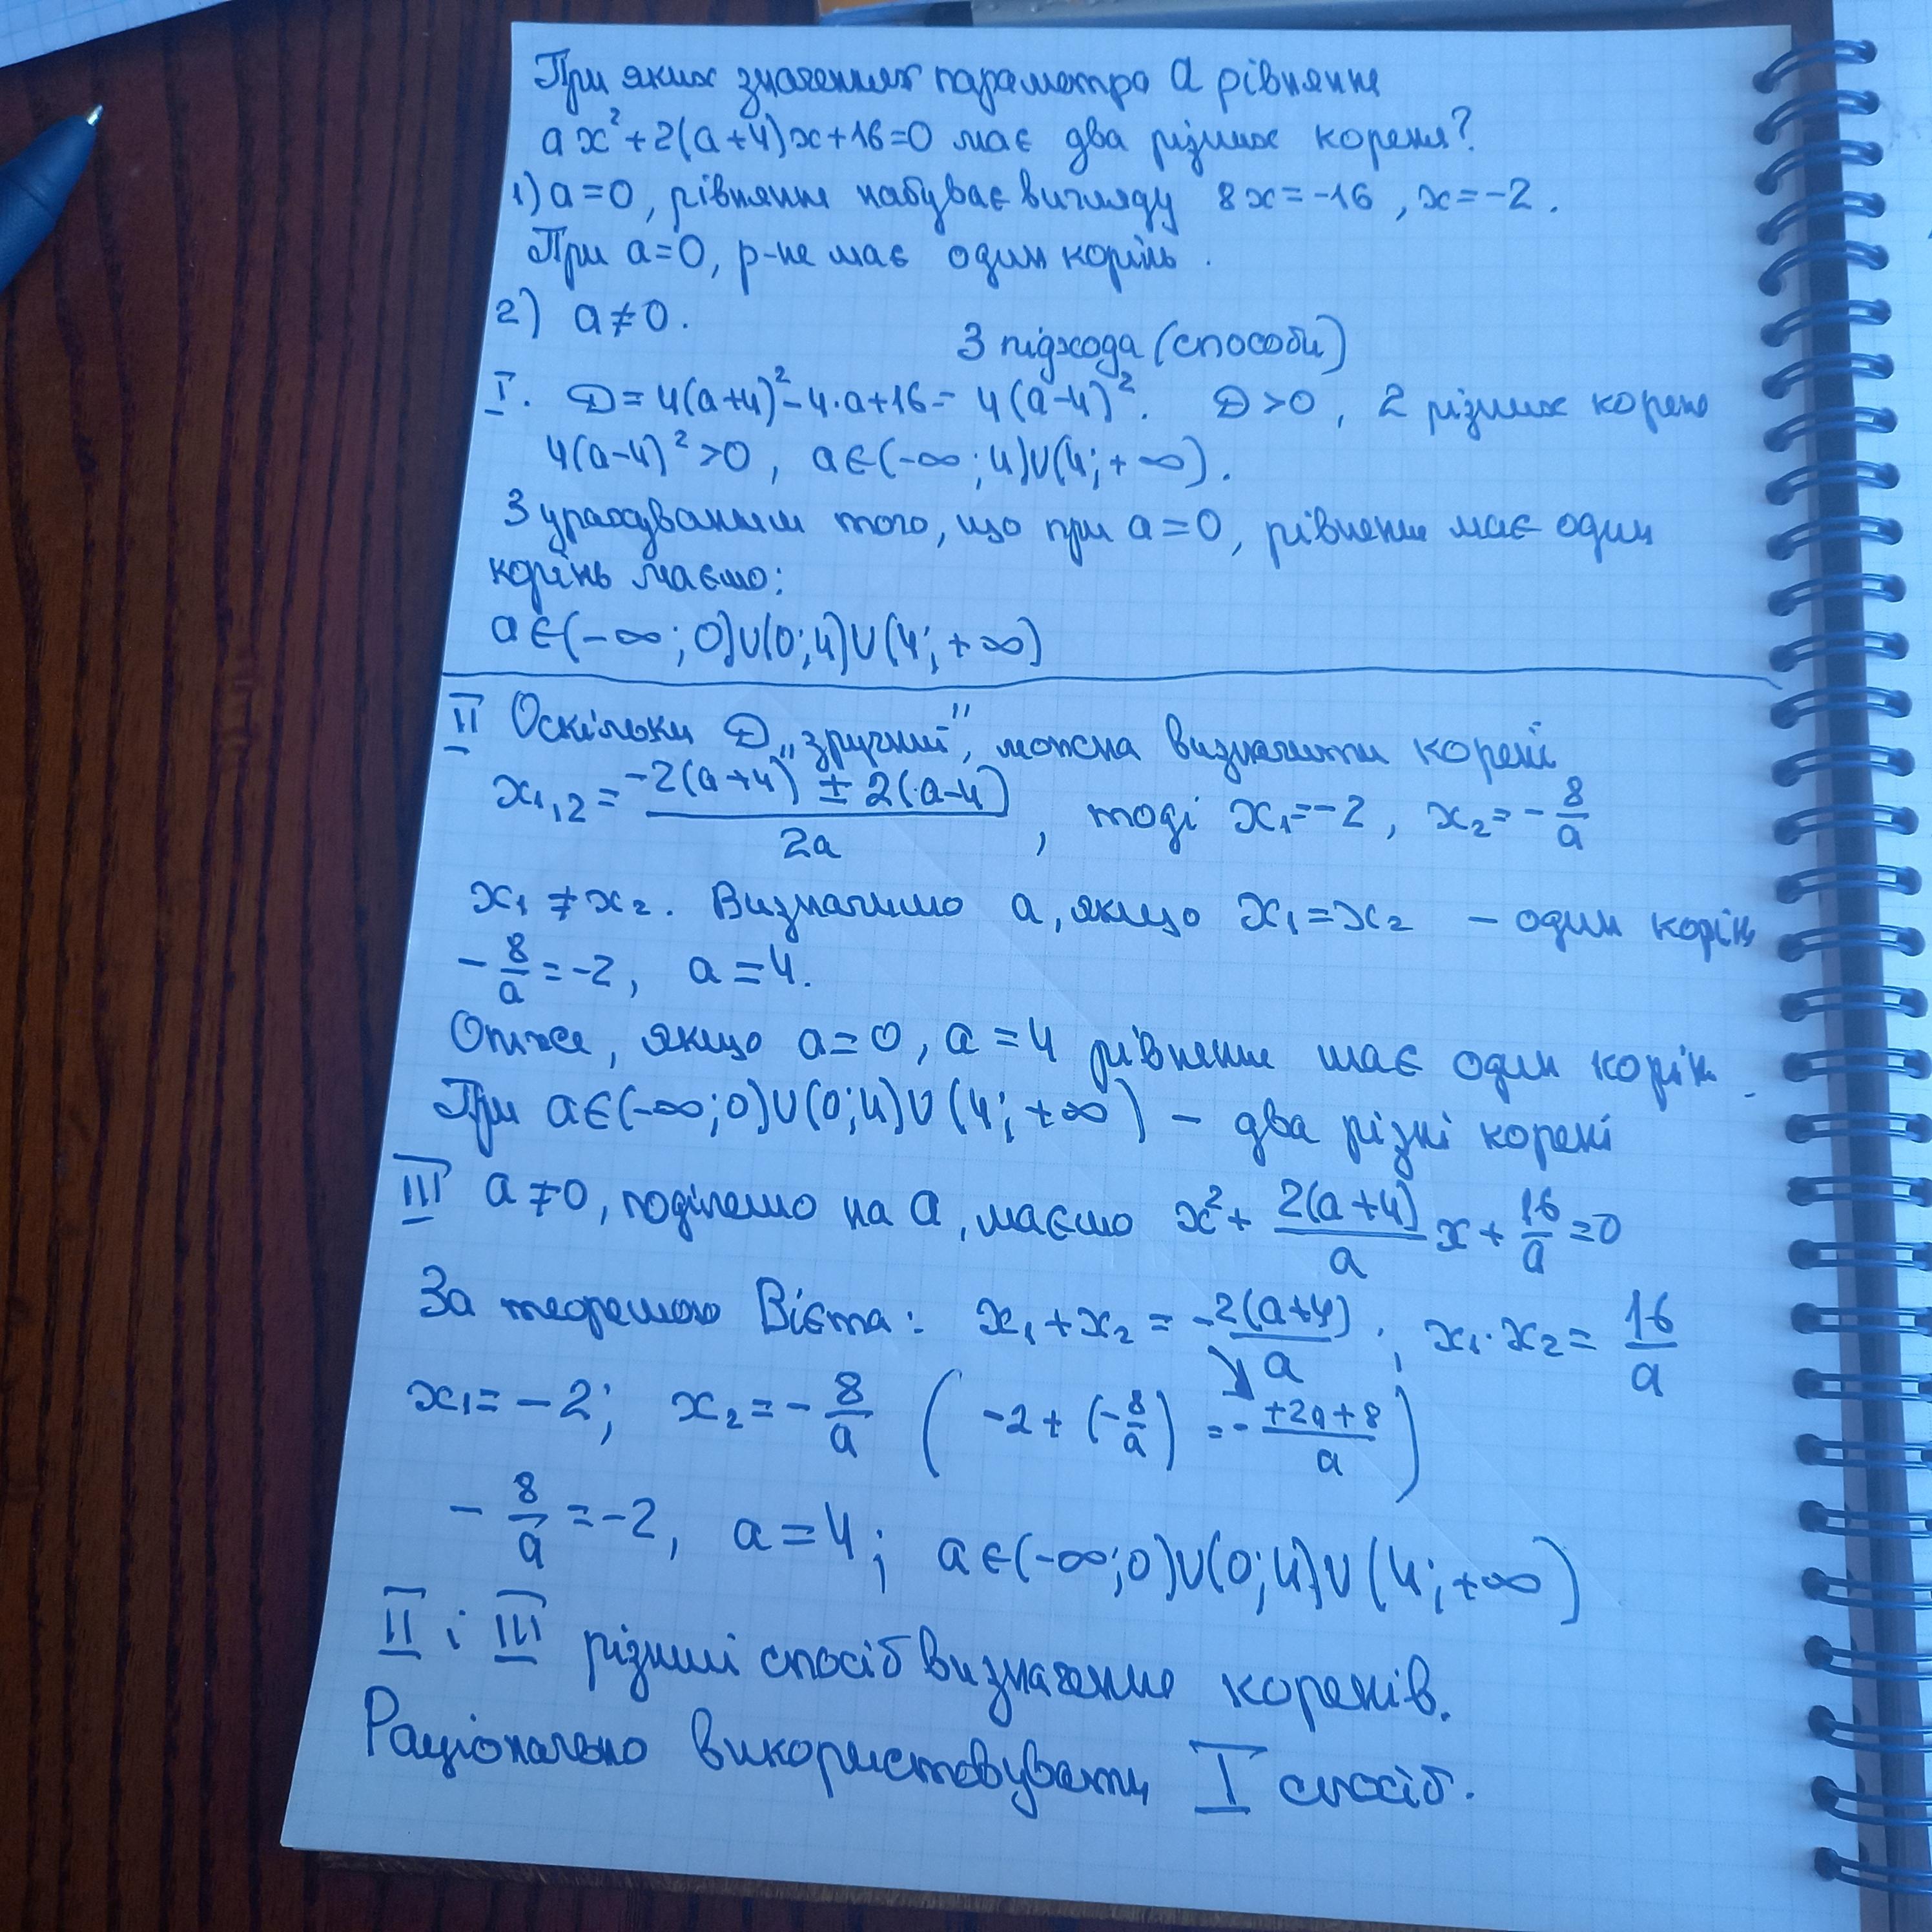 При яких значеннях параметра a рівняння
ax²+2(a+4)x+16=0 має два різних кореня?
1) a=0, рівняння набуває вигляду 8x=-16, x=-2.
При a=0, р-не має один корінь.
2) a≠0.
3 підхода (способи)
I. D=4(a+4)²-4·a+16= 4(a-4)². D>0, 2 різних корене
4(a-4)²>0, a∈(-∞;4)∪(4;+∞).
З урахуванням того, що при a=0, рівняння має один
корінь маємо:
a∈(-∞;0)∪(0;4)∪(4;+∞)
II Оскільки D „зручний", можна визначити корені
x₁,₂= (-2(a+4) ± 2(a-4))/2a, тоді x₁=-2, x₂=-8/a
x₁≠x₂. Визначимо a, якщо x₁=x₂ - один корінь
-8/a=-2, a=4.
Отже, якщо a=0, a=4 рівняння має один корінь.
При a∈(-∞;0)∪(0;4)∪(4;+∞) - два різні корені
III a≠0, поділемо на a, маємо x²+ 2(a+4)/a x+ 16/a=0
За теоремою Вієта: x₁+x₂= -2(a+4)/a; x₁·x₂= 16/a
x₁=-2; x₂=-8/a (-2+(-8/a) =- +2a+8/a)
-8/a=-2, a=4; a∈(-∞;0)∪(0;4)∪(4;+∞)
II і III різний спосіб визначення коренів.
Раціонально використовувати I спосіб.